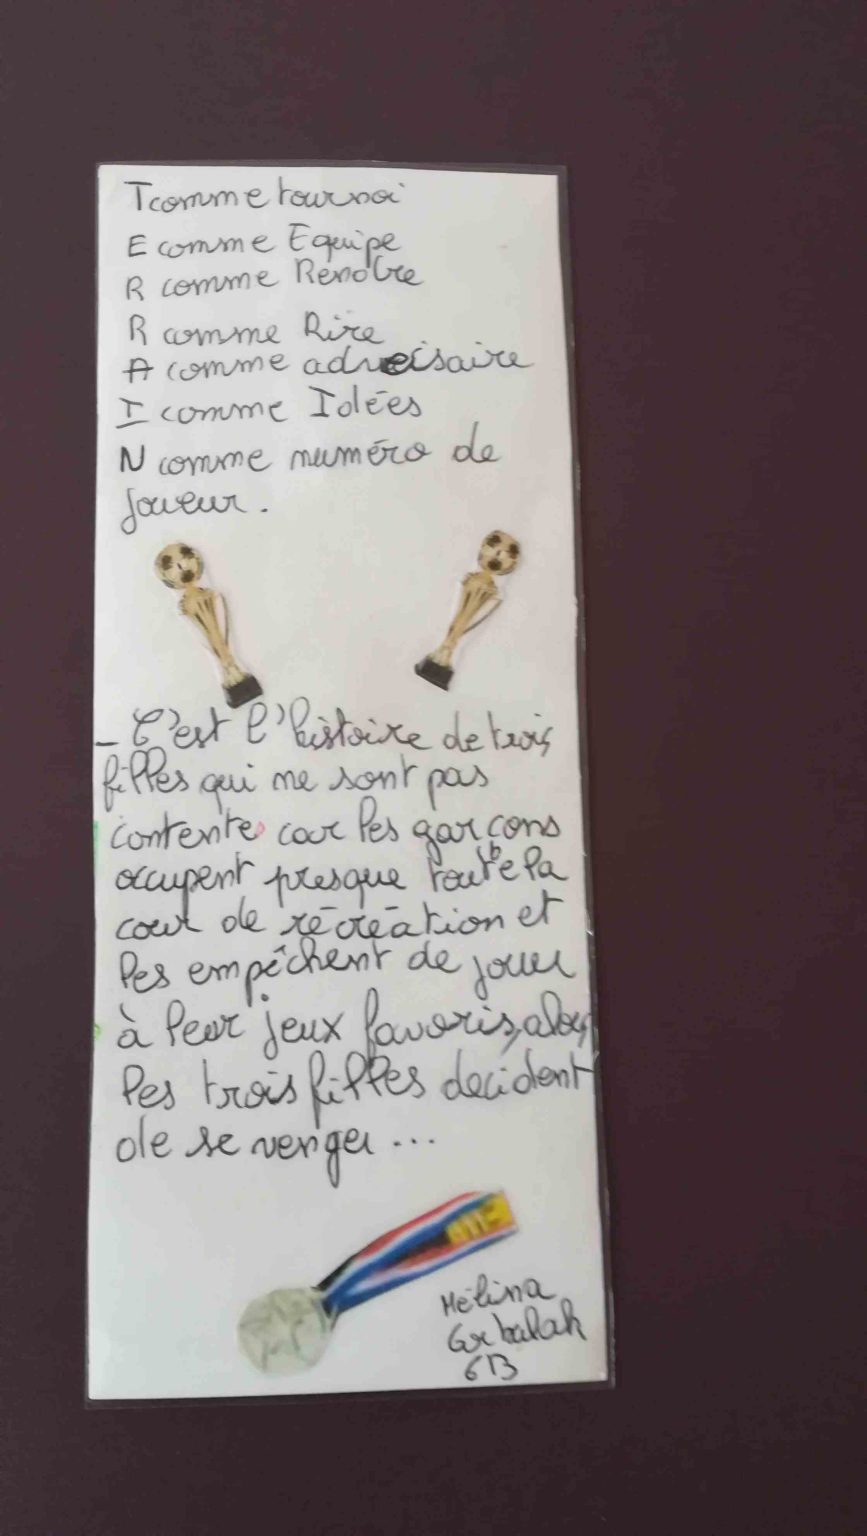 T comme tournoi
E comme Equipe
R comme Rénotre
R comme Rire
A comme adversaire
I comme Idées
N comme numéro de
Joueur.
- C'est l'histoire de trois
filles qui ne sont pas
contente car les garçons
occupent presque toute la
cour de récréation et
les empêchent de jouer
à leur jeux favoris, alors
les trois filles decident
de se venger ...
Mélina
6B